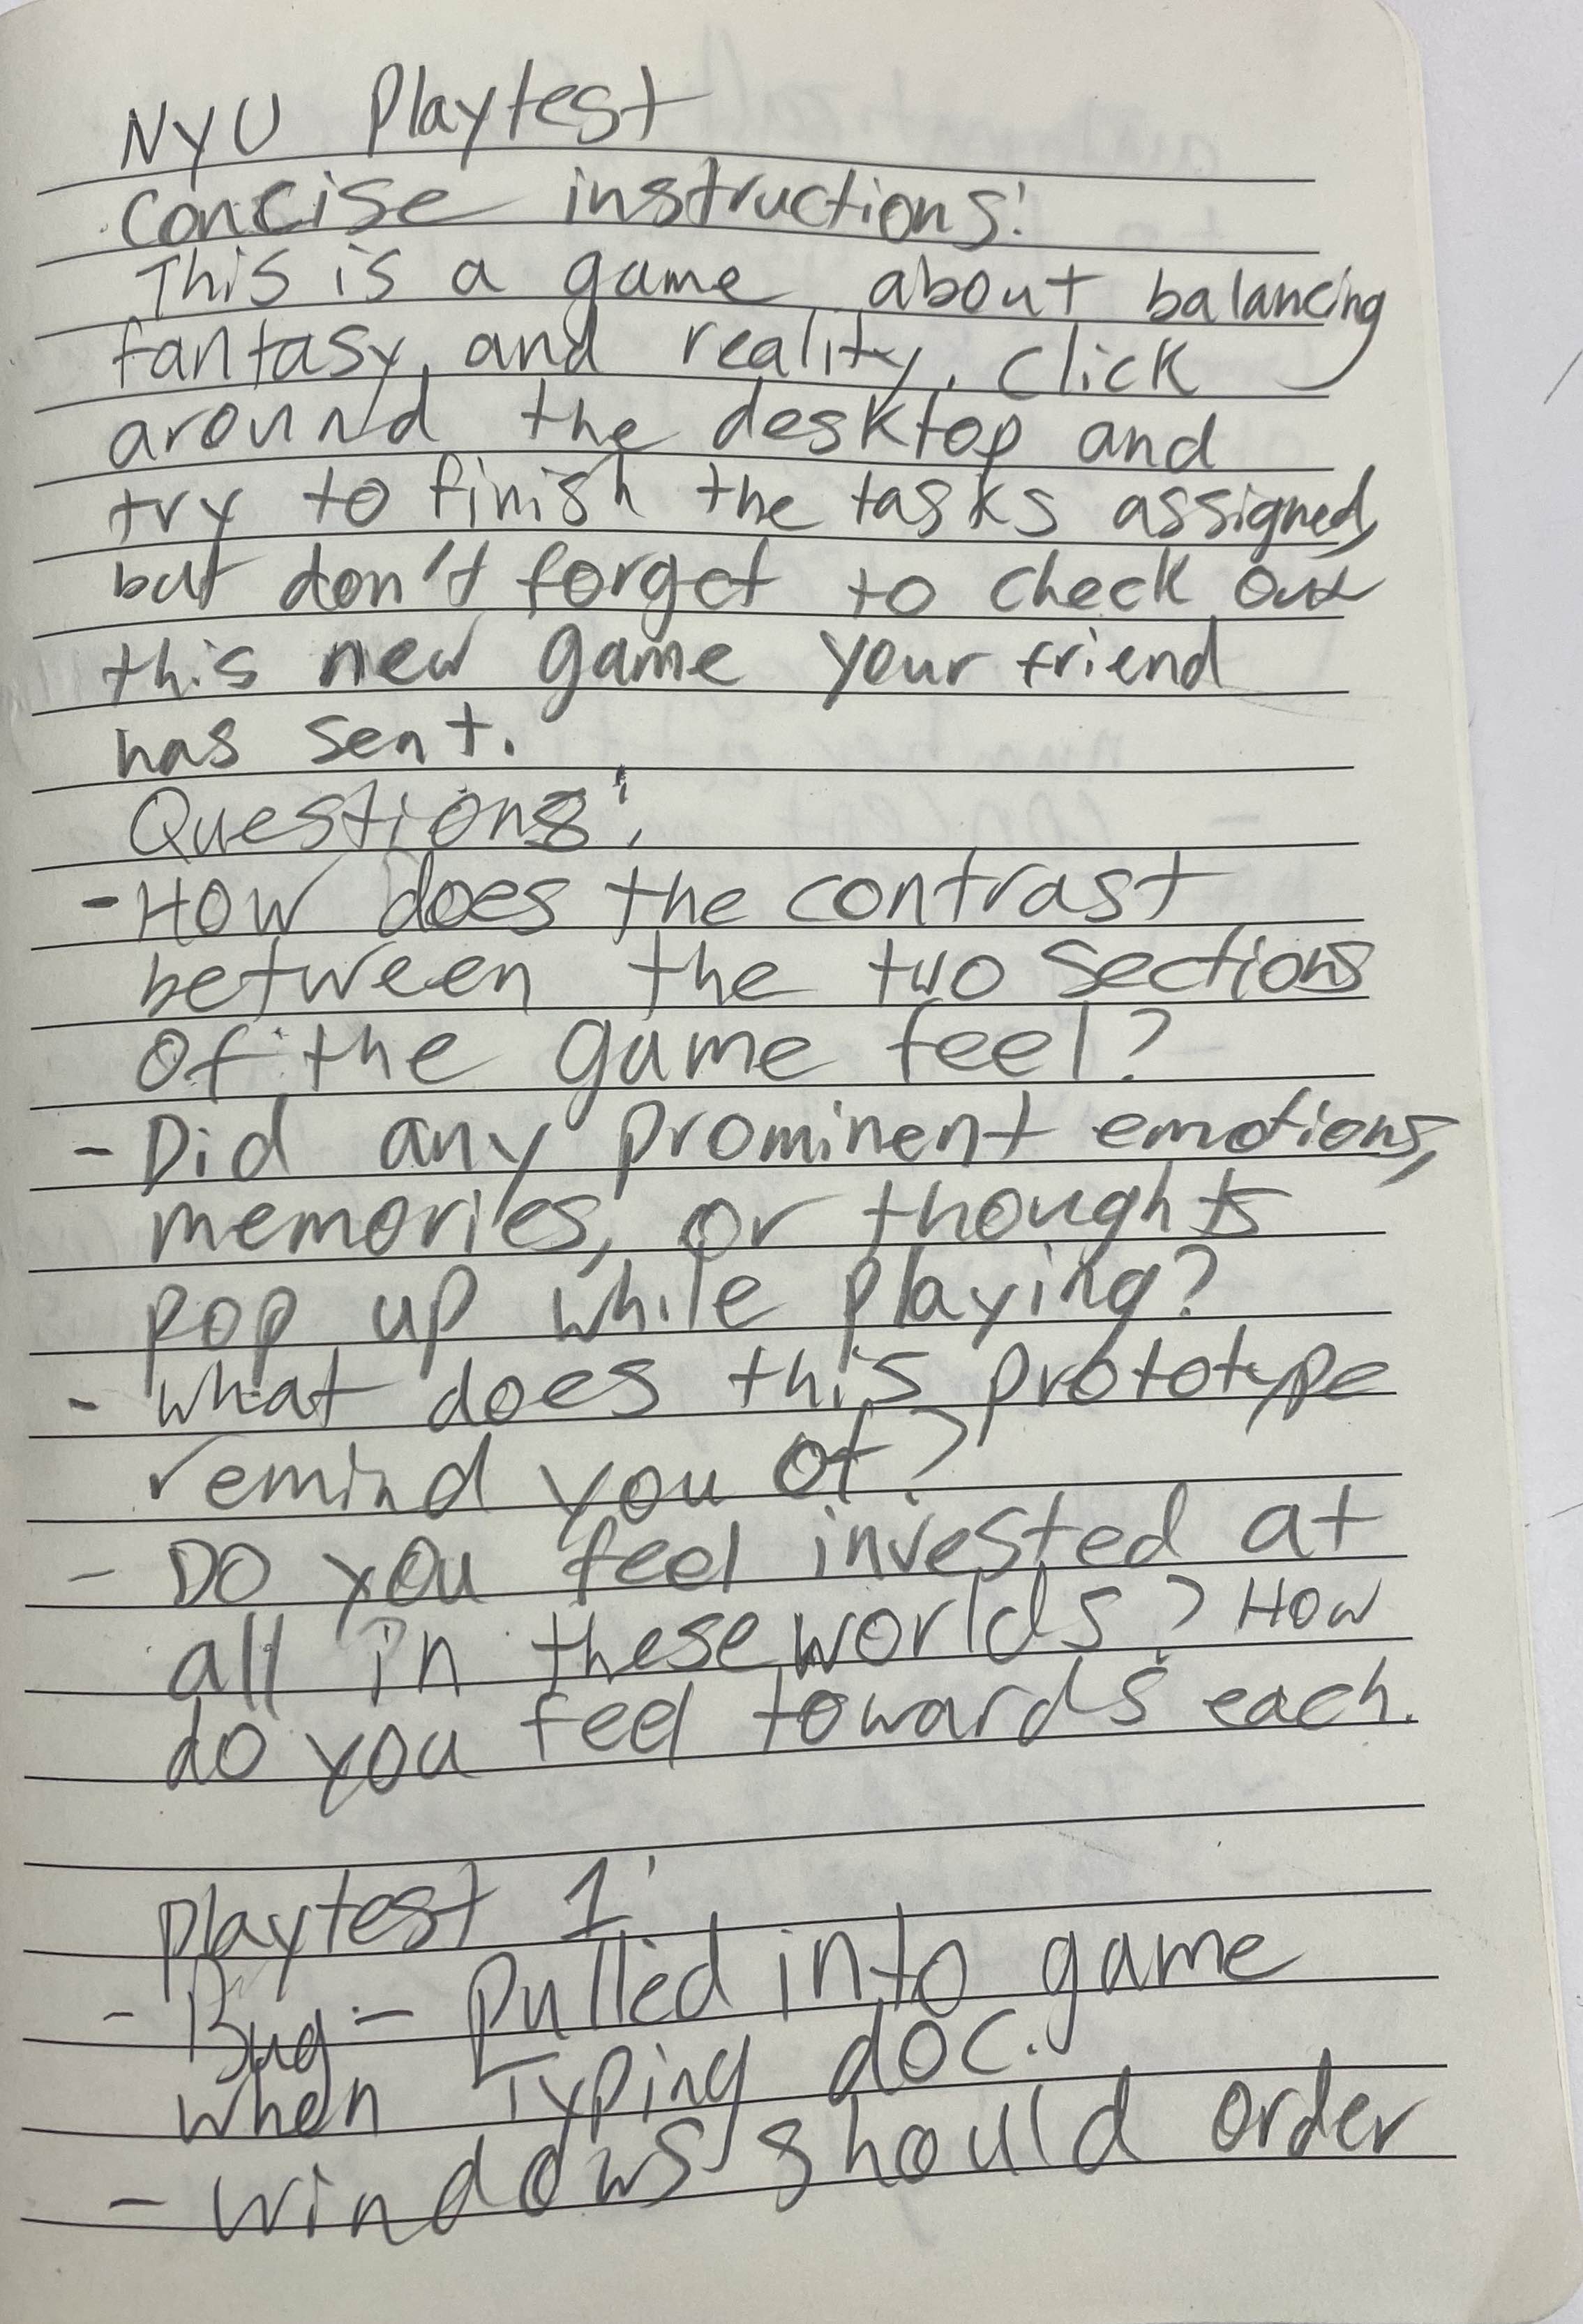 NYU Playtest
Concise instructions:
This is a game about balancing
fantasy and reality. Click
around the desktop and
try to finish the tasks assigned,
but don't forget to check out
this new game your friend
has sent.
Questions:
- How does the contrast
between the two sections
of the game feel?
- Did any prominent emotions,
memories, or thoughts
pop up while playing?
- what does this prototype
remind you of?
- Do you feel invested at
all in these worlds? How
do you feel towards each.
Playtest 1:
- Bug - Pulled into game
when Typing doc.
- windows should order